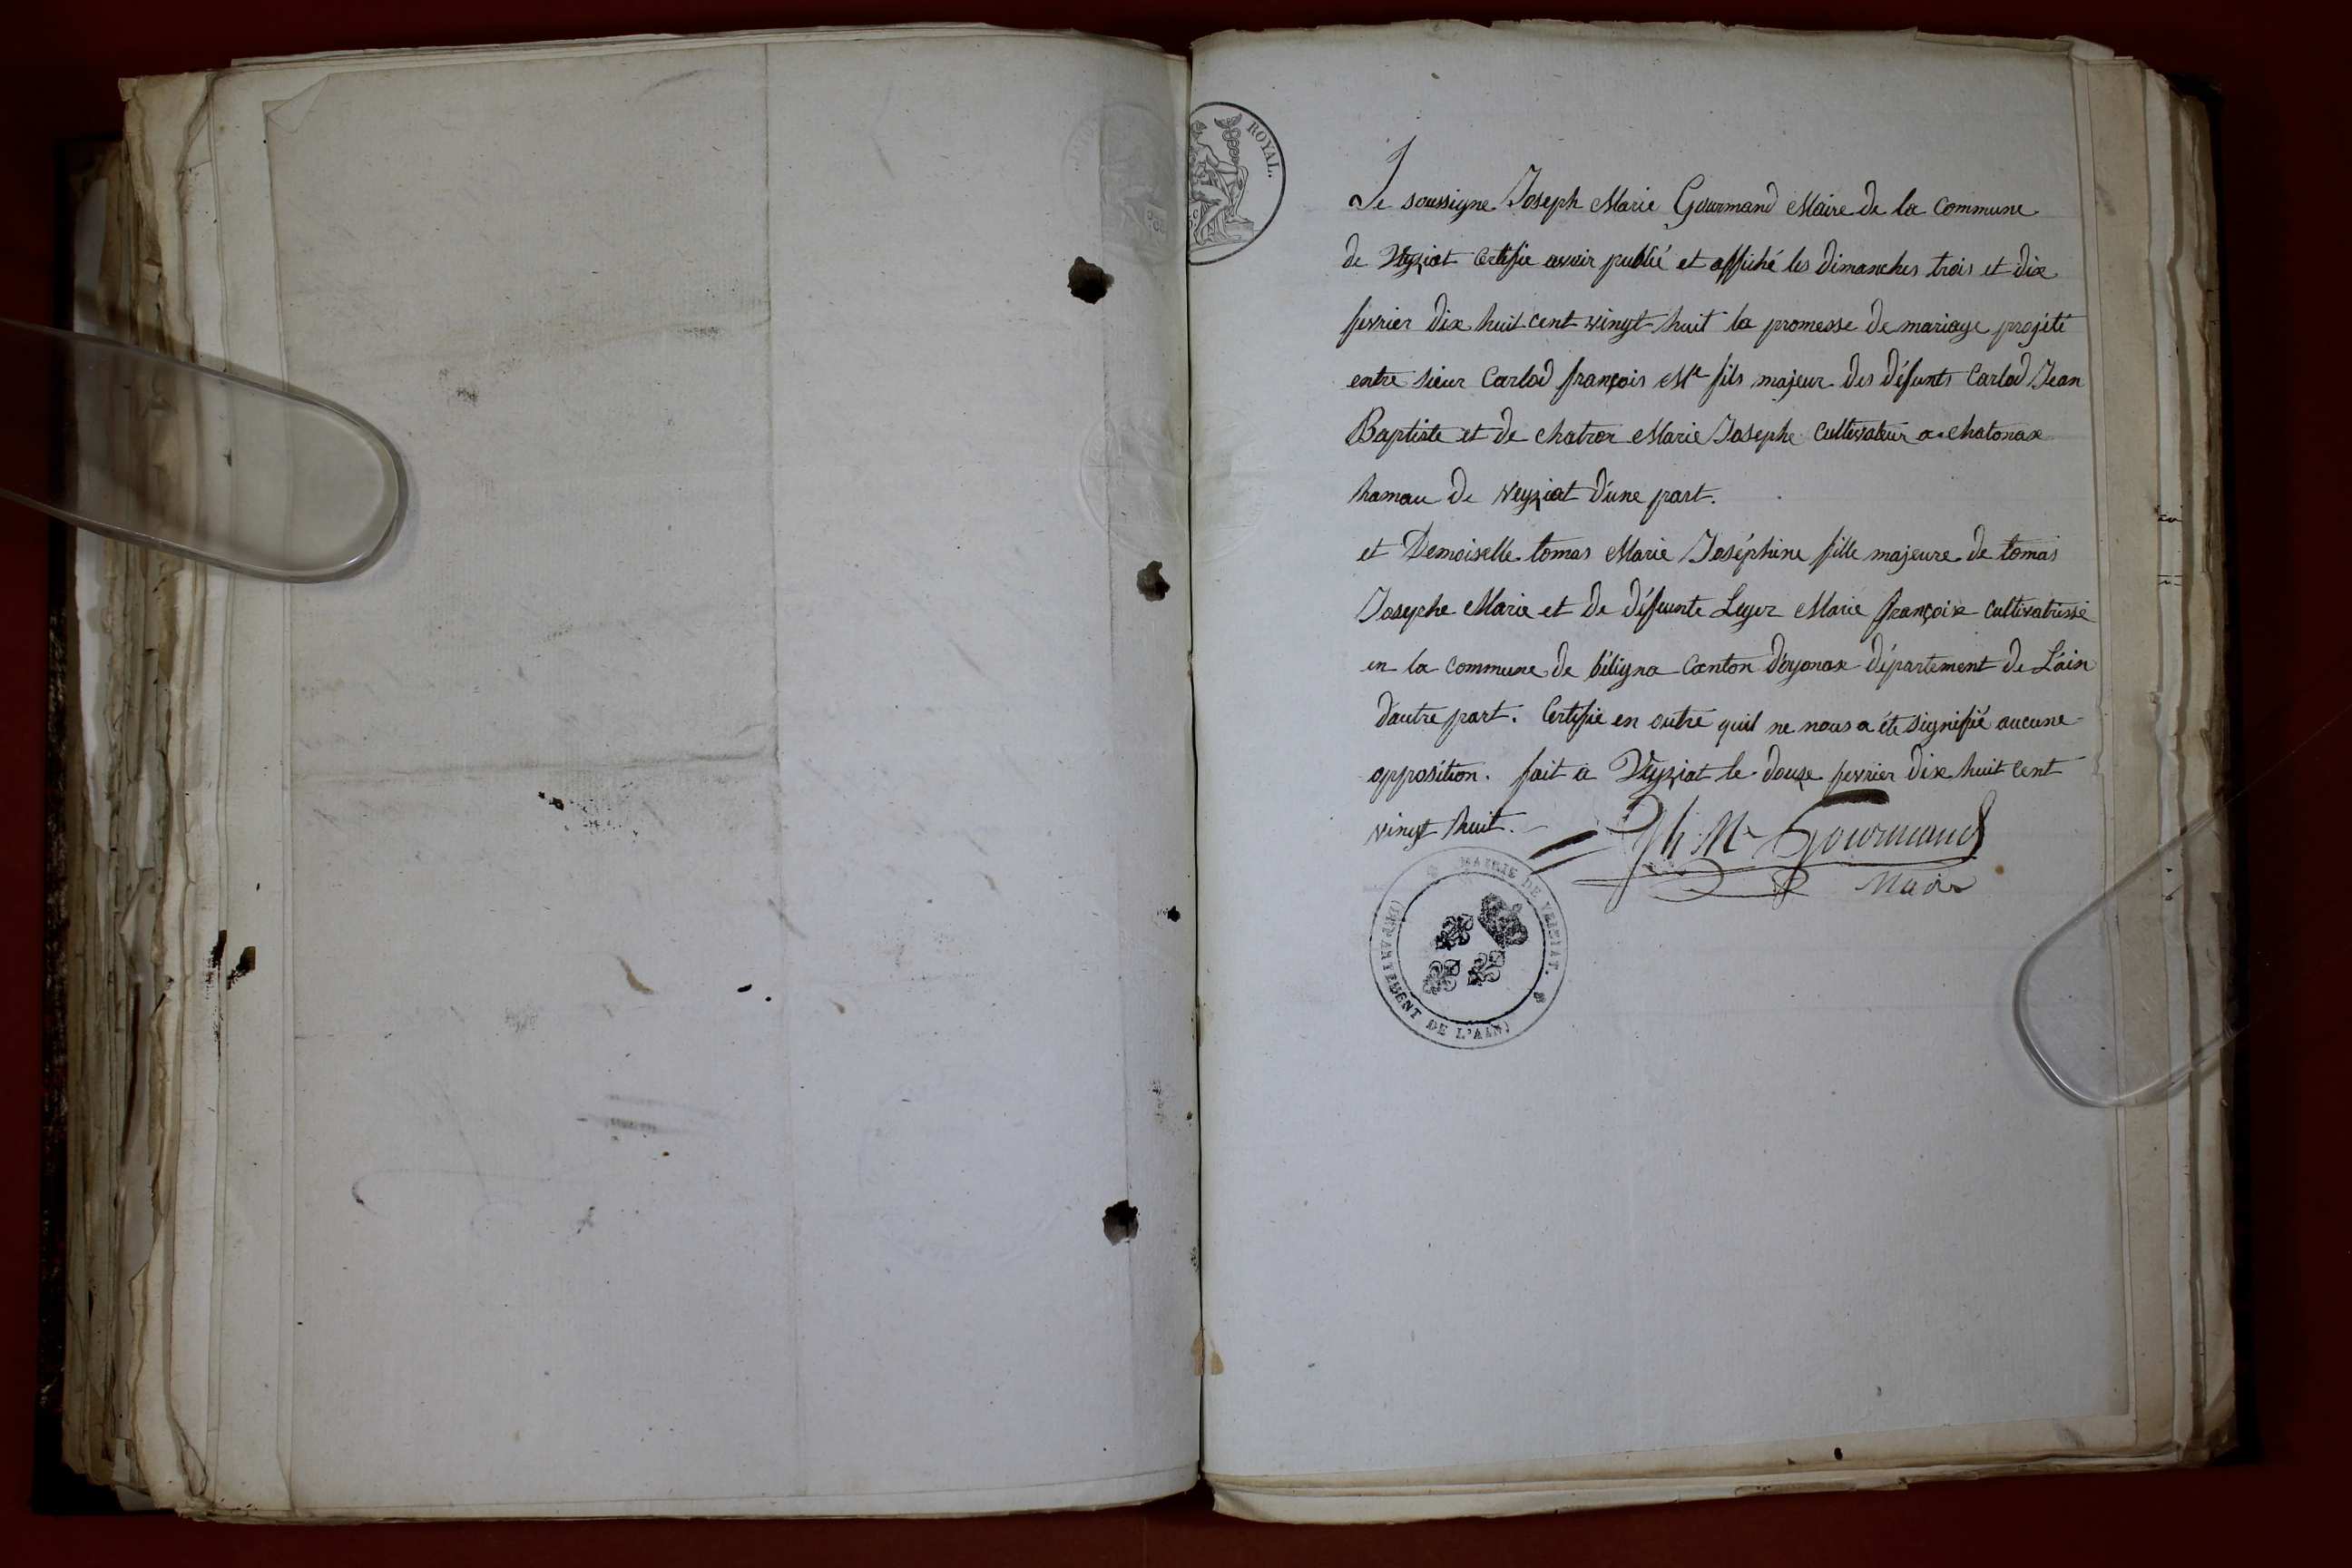 ROYAL.
Je soussigne Joseph Marie Gourmand Maire de la Commune
de Veyziat Certifie avoir publié et affiché les dimanches trois et dix
fevrier dix huit cent vingt huit la promesse de mariage projété
entre sieur Carlod françois Mie fils majeur des défunts Carlod Jean
Baptiste et de chatron Marie Josephe Cultivateur a chatonax
hamau de veyziat d'une part.
et Demoiselle tomas Marie Joséphine fille majeure de tomas
Josephe Marie et de défeunte Leger Marie françoise Cultivatrisse
en la commune de béligna Canton d'oyonax département de L'ain
d'autre part. Certifie en outre quil ne nous a été signifié aucune
opposition. fait a Veyziat le douze fevrier dix huit cent
vingt huit.
Jh Mie Gourmand
Maire
MAIRIE DE VEIZIAT.
(DÉPARTEMENT DE L'AIN)